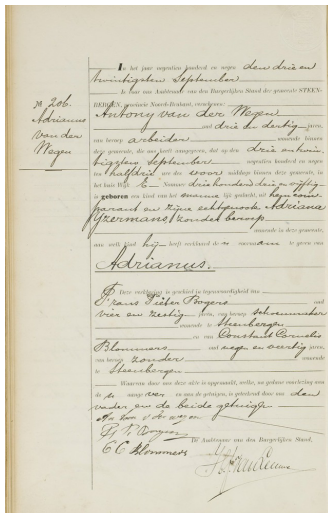 No 206.
Adrianus
van der
Wegen
In het jaar negentien honderd en negen den drie en
twintigsten September
is voor ons Ambtenaar van den Burgerlijken Stand der gemeente STEEN-
BERGEN, provincie Noord-Brabant, verschenen:
Antony van der Wegen
oud drie en dertig jaren,
van beroep arbeider wonende binnen
deze gemeente, die ons heeft aangegeven, dat op den drie en twin-
tigsten September negentien honderd en negen
ten half drie ure des voor middags binnen deze gemeente, in
het huis Wijk E Nummer driehonderd drie en vijftig
is geboren een kind van het mann lijk geslacht, uit hem com-
parant en zijne echtgenoote Adriana
IJzermans, zonder beroep
wonende in deze gemeente,
aan welk kind hij heeft verklaard de voornaam te geven van
Adrianus.
Deze verklaring is geschied in tegenwoordigheid van
Frans Pieter Bogers oud
vier en zestig jaren, van beroep schoenmaker
wonende te Steenbergen
en van Constant Cornelis
Blommers oud negen en veertig jaren,
van beroep zonder wonende
te Steenbergen
Waarvan door ons deze akte is opgemaakt, welke, na gedane voorlezing aan
de aangever en aan de getuigen, is geteekend door ons den
vader en de beide getuigen
A van der wegen
Fr P Bogers
C C Blommers
De Ambtenaar van den Burgerlijken Stand,